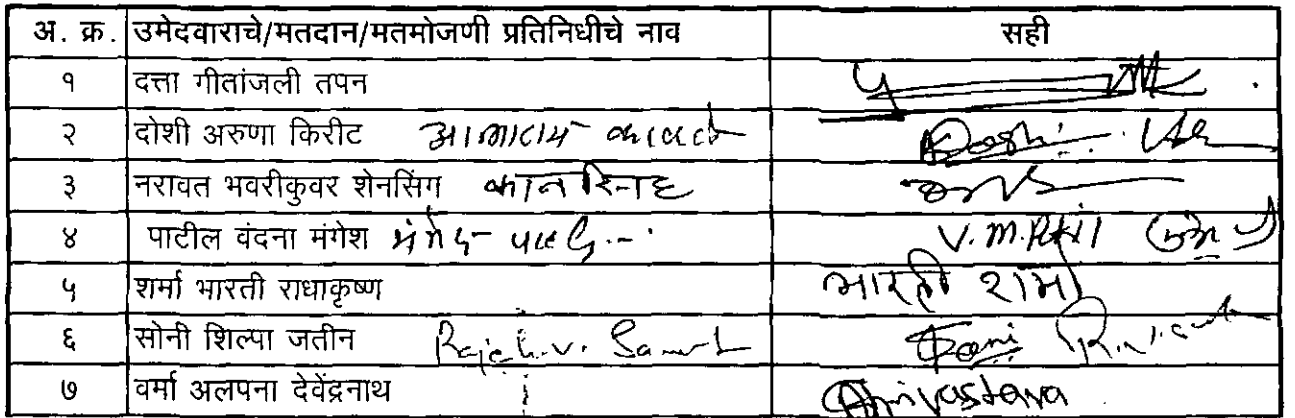 अ. क्र. उमेदवाराचे/मतदान/मतमोजणी प्रतिनिधीचे नाव सही
१ दत्ता गीतांजली तपन
२ दोशी अरुणा किरीट Doshi
३ नरावत भवरीकुवर शेनसिंग
४ पाटील वंदना मंगेश मंगेश V.M.Patil
५ शर्मा भारती राधाकृष्ण भारती शर्मा
६ सोनी शिल्पा जतीन Soni
७ वर्मा अलपना देवेंद्रनाथ Shrivastava